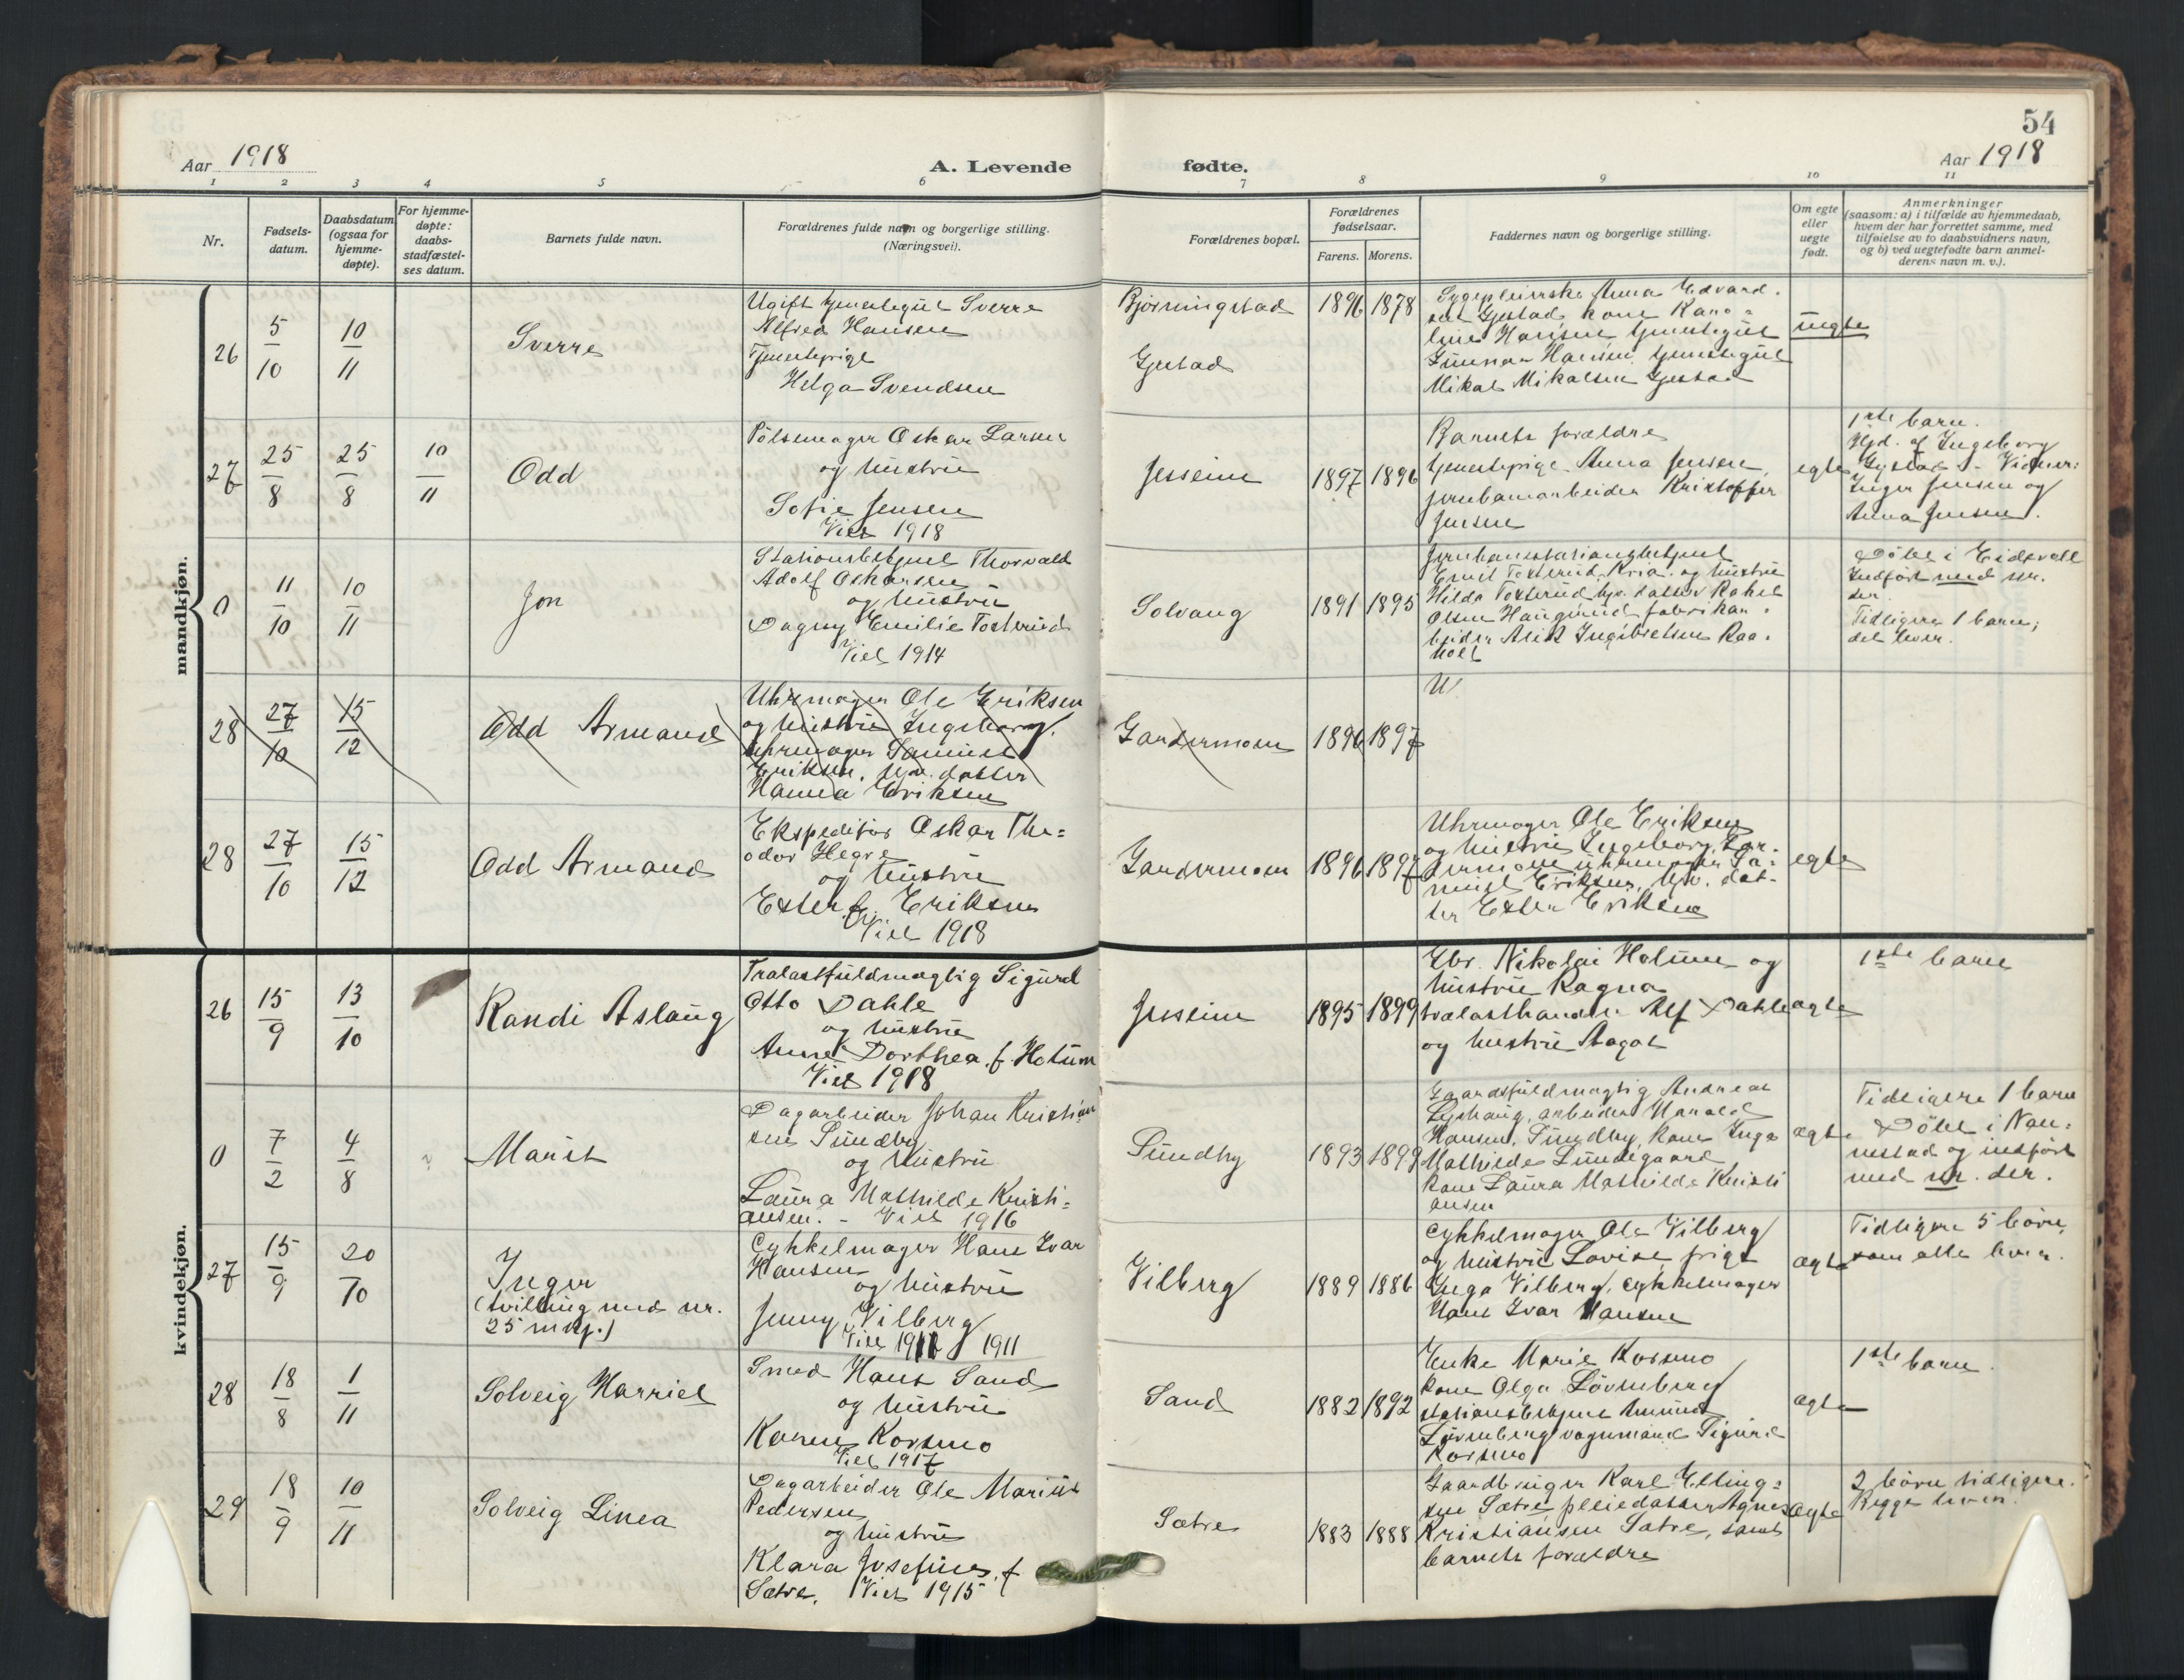 54
Aar 1918
A. Levende
fødte.
Aar 1918
1 2 3 4 5 6 7 8 9 10 11
Nr.
Fødsels-
datum.
Daabsdatum
(ogsaa for
hjemme-
døpte).
For hjemme-
døpte:
daabs-
stadfæstel-
ses datum.
Barnets fulde navn.
Forældrenes fulde navn og borgerlige stilling.
(Næringsvei).
Forældrenes bopæl.
Forældrenes
fødselsaar.
Farens. Morens.
Faddernes navn og borgerlige stilling.
Om egte
eller
uegte
født.
Anmerkninger
(saasom: a) i tilfælde av hjemmedaab,
hvem der har forrettet samme, med
tilføielse av to daabsvidners navn,
og b) ved uegtefødte barn anmel-
derens navn m. v.).
mandkjøn.
26
5/10
10/11
Sverre
Ugift tjenestegut Sverre
Alfred Hansen
Tjenestepige
Helga Svendsen
Bjørningstad
Gjestad
1896 1878
Sygepleierske Anna Edvard-
sen Gjestad kone Karo-
line Hansen tjenestegut
Gunnar Hansen, tjenestegut
Mikal Mikalsen Gjestad
uegte
27
25/8
25/8
10/11
Odd
Pølsemager Oskar Larsen
og hustru
Sofie Jensen
Viet 1918
Jesseim
1897 1896
Barnets forældre
tjenestepige Anna Jensen,
jernbanearbeider Kristoffer
Jensen
egte
1ste barn.
Hjd. af Ingeborg
Gystad - Vidner:
Inger Jensen og
Anna Jensen.
0
11/10
10/11
Jon
Stationsbetjent Thorvald
Adolf Oskarsen
og hustru
Dagny Emilie Tosterud
Viet 1914
Solvang
1891 1895
Jernbanestationsbetjent
Emil Tosterud, Kria. og hustru
Hilda Tosterud hjv. datter Rakel
Olsen Haugerud, fabrikar-
beider Alik Ingebretsen Raa-
holt
Døbt i Eidsvold
Indført med nr.
der.
Tidligere 1 barn;
det lever.
28
27/10
15/12
Odd Armand
Uhrmager Ole Eriksen
og hustru Ingeborg,
uhrmager Samuel
Eriksen, hjv. datter
Hanna Eriksen
Gardermoen
1896 1897
U
28
27/10
15/12
Odd Armand
Ekspeditør Oskar The-
odor Hegre
og hustru
Ester f. Eriksen
Viet 1918
Gardermoen
1896 1897
Uhrmager Ole Eriksen
og hustru Ingeborg, Gar-
dermoen uhrmager Sa-
muel Eriksen, hjv. dat-
ter Ester Eriksen
egte
kvindekjøn.
26
15/9
13/10
Randi Aslaug
Trælastfuldmægtig Sigurd
Otto Dahle
og hustru
Anne Dorthea f. Holum
Viet 1918
Jesseim
1895 1899
Gbr. Nikolai Holum og
hustru Ragna
trælasthandler Alf Dahle
og hustru Aagot
ægte
1ste barn
0
7/2
4/8
Marit
Dagarbeider Johan Kristian
sen Sundby
og hustru
Laura Mathilde Kristi-
ansen. - Viet 1916
Sundby
1893 1899
Gaardsfuldmægtig Andreas
Lyshaug, arbeider Harald
Hansen, Sundby, kone Inga
Mathilde Lundegaard
kone Laura Mathilde Kristi
ansen
ægte
Tidligere 1 barn
Døbt i Nan-
nestad og indført
med nr. der.
27
15/9
20/10
Inger
(tvilling med nr.
25 mkj.)
Cykkelmager Hans Ivar
Hansen
og hustru
Jenny Vilberg
Viet 1911
Vilberg
1889 1886
Cykkelmager Ole Vilberg
og hustru Lovise, frigt
Inga Vilberg, cykkelmager
Hans Ivar Hansen
ægte
Tidligere 5 børn,
som alle lever.
28
18/8
1/11
Solveig Harriet
Smed Hans Sand
og hustru
Karen Korsmo
Viet 1917
Sand
1882 1892
Enke Marie Korsmo
kone Olga Løvenberg
stationsbetjent Amund
Løvenberg vognmand Sigurd
Korsmo
ægte
1ste barn.
29
18/9
10/11
Solveig Linea
Dagarbeider Ole Marius
Pedersen
og hustru
Klara Josefine, f.
Sætre. Viet 1915
Sætre
1883 1888
Gaardbruger Karl Elling-
sen Sætre pleiedatter Agnes
Kristiansen Sætre, samt
barnets forældre
ægte
2 børn tidligere.
Begge lever.